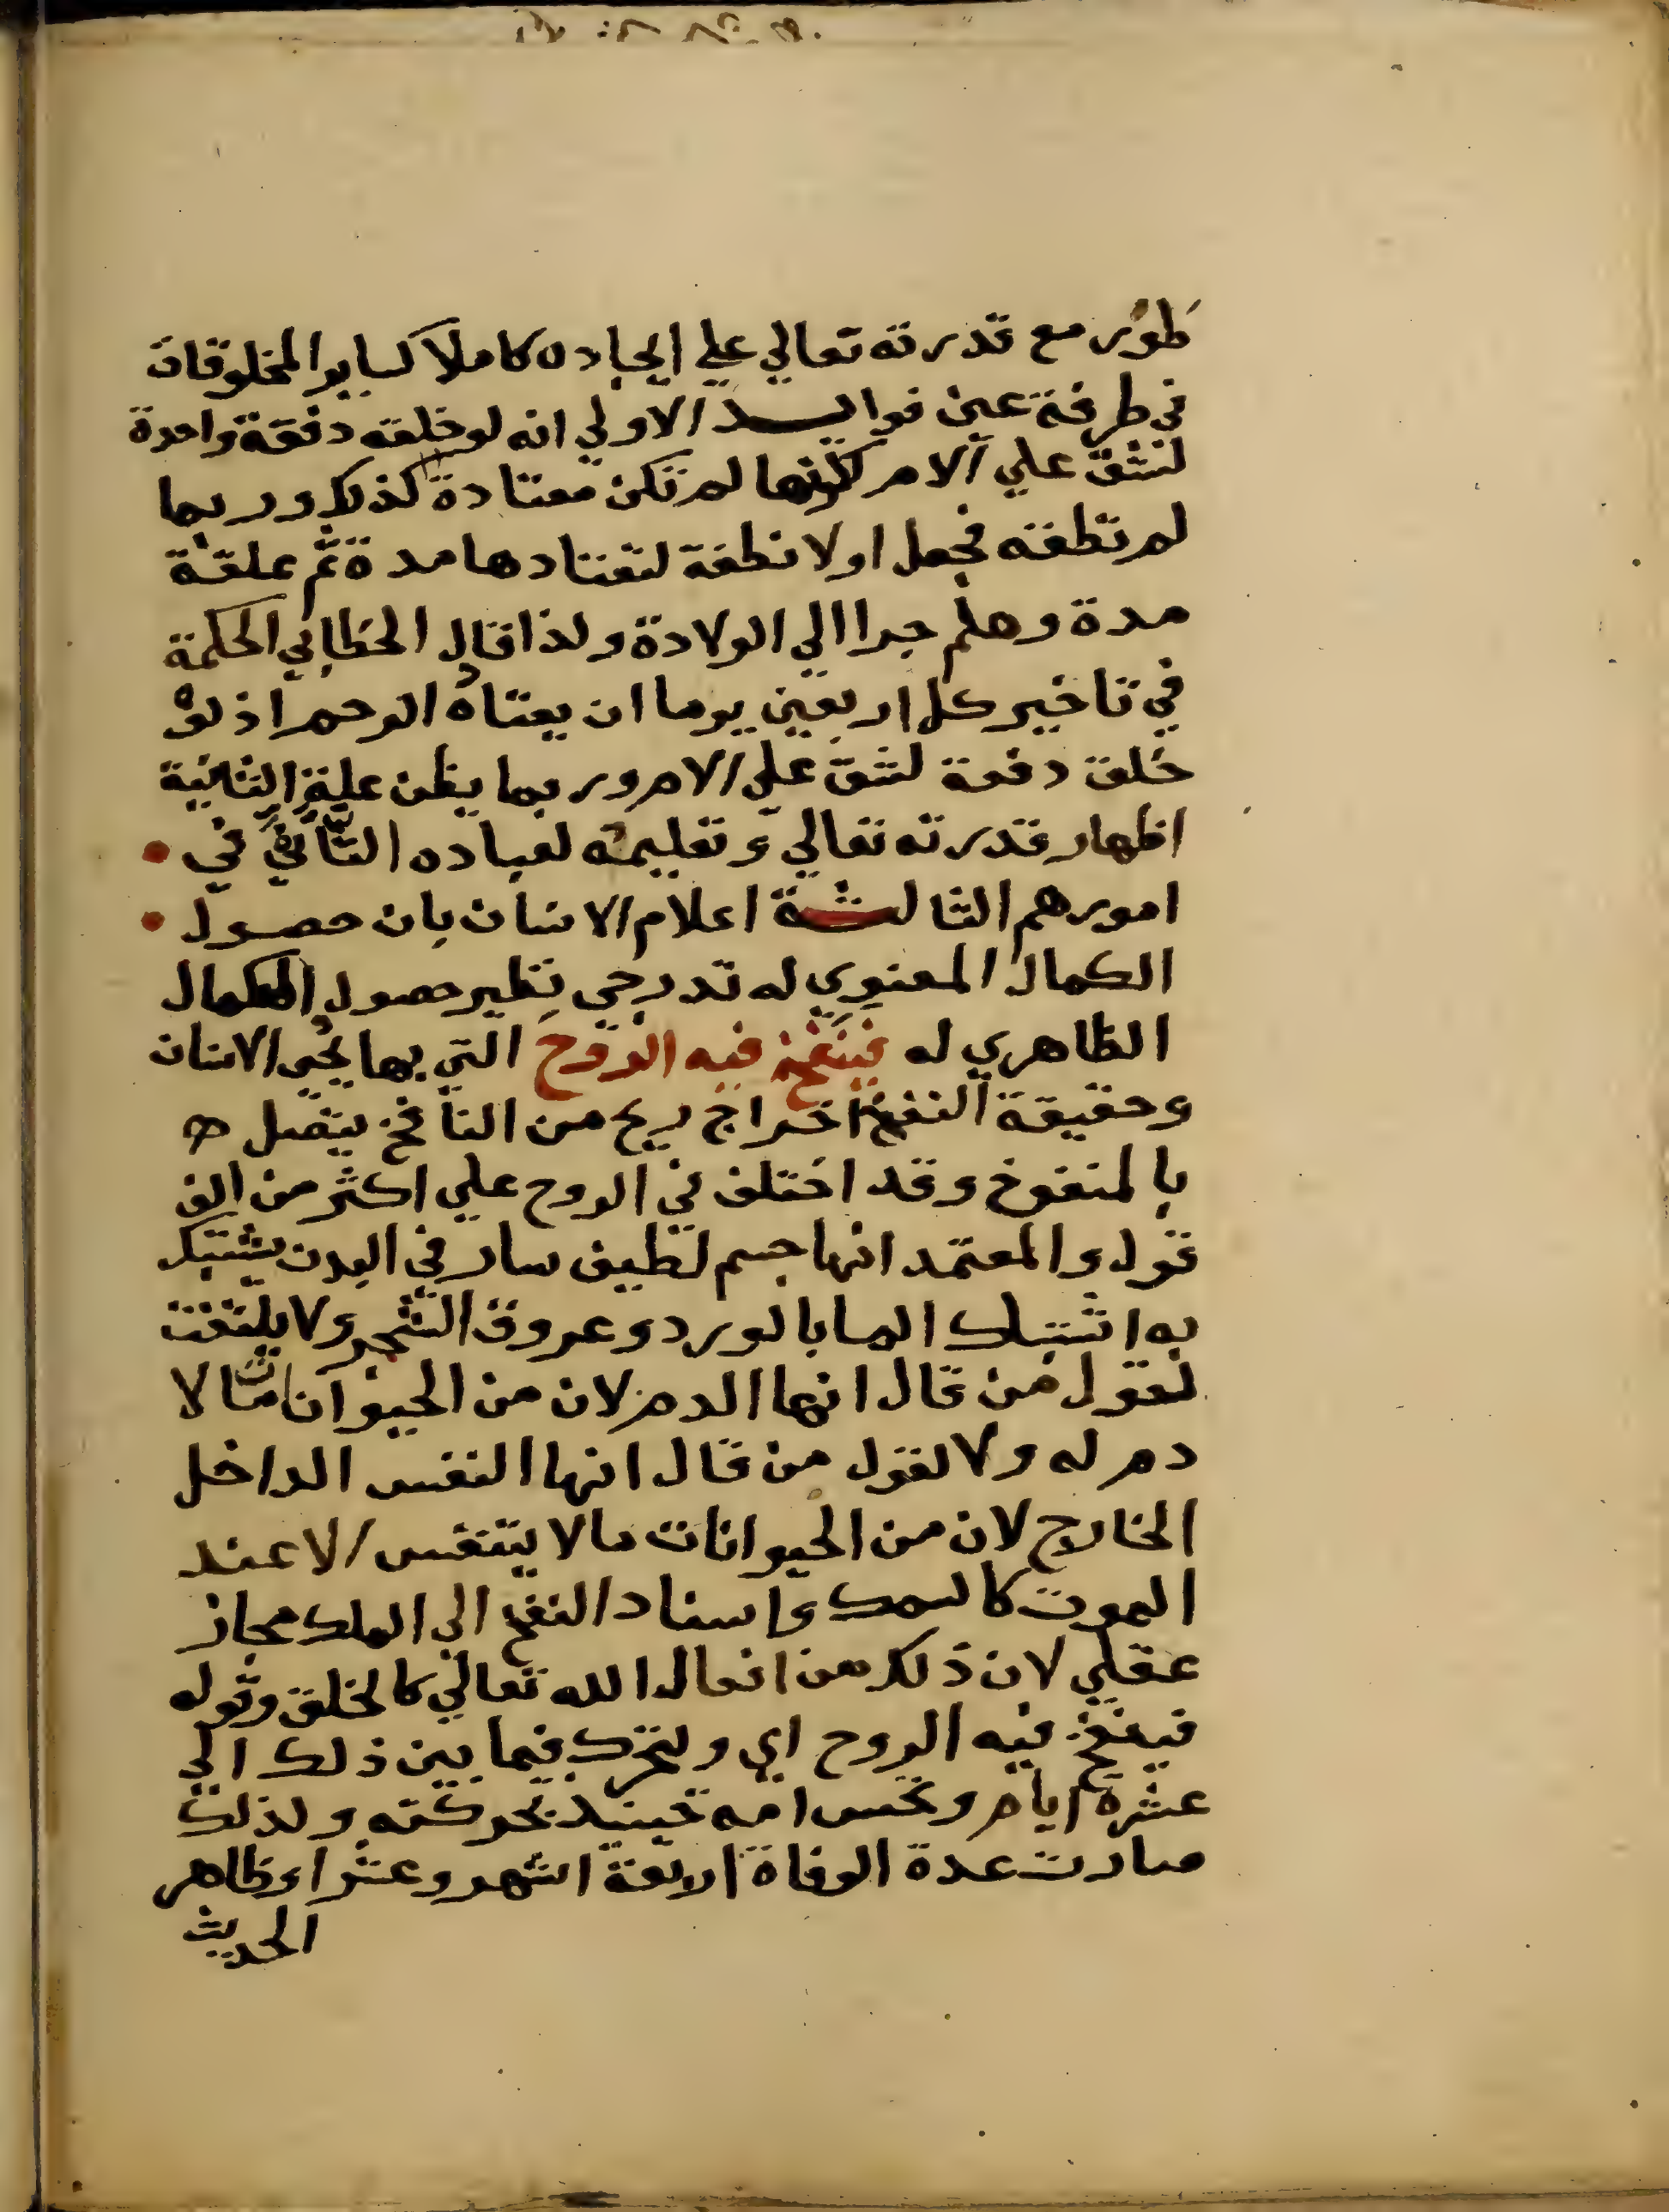 طور مع قدرته تعالي علي ايجاده كاملا كساير المخلوقات
في طرفة عين فوايد الاولي انه لو خلقه دفعة واحدة
لشق علي الام لكونها لم تكن معتادة كذلك وربما
لم تطقه فجعل اولا نطفة لتعتادها مدة ثم علقة
مدة وهلم جرا الي الولادة ولذا قال الخطابي الحكمة
في تاخير كل اربعين يوما ان يعتاده الرحم اذ لو
خلق دفعة لشق علي الام وربما يظن علة الثانية
اظهار قدرته تعالي وتعليمه لعباده التأني في
امورهم الثالثة اعلام الانسان بان حصول
الكمال المعنوي له تدريجي نظير حصول الكمال
الظاهري له فينفخ فيه الروح التي بها يحيي الانسان
وحقيقة النفخ اخراج ريح من النافخ يتصل
بالمنفوخ وقد اختلف في الروح علي اكثر من الف
قول والمعتمد انها جسم لطيف سار في البدن يشتبك
به اشتباك الما بالورد وعروق الشجر ولا يلتفت
لقول من قال انها الدم لان من الحيوانات ما لا
دم له ولا لقول من قال انها النفس الداخل
الخارج لان من الحيوانات ما لا يتنفس الا عند
الموت كالسمك واسناد النفخ الي الملك مجاز
عقلي لان ذلك من افعال الله تعالي كالخلق وقوله
فينفخ فيه الروح اي ويتحرك فيما بين ذلك الي
عشرة ايام وتحس امه حينيذ بحركته ولذلك
صارت عدة الوفاة اربعة اشهر وعشرا وظاهر
الحديث